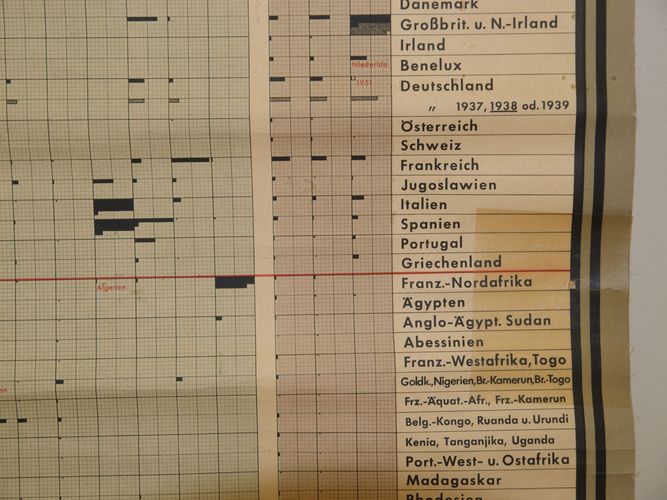 Dänemark
Großbrit. u. N.-Irland
Irland
Benelux
Niederlde.
1951
Deutschland
„ 1937, 1938 od. 1939
Österreich
Schweiz
Frankreich
Jugoslawien
Italien
Spanien
Portugal
Griechenland
Franz.-Nordafrika
Algerien
Ägypten
Anglo-Ägypt. Sudan
Abessinien
Franz.-Westafrika, Togo
Goldk., Nigerien, Br.-Kamerun, Br.-Togo
Frz.-Äquat.-Afr., Frz.-Kamerun
Belg.-Kongo, Ruanda u. Urundi
Kenia, Tanganjika, Uganda
Port.-West- u. Ostafrika
Madagaskar
Rhodesien